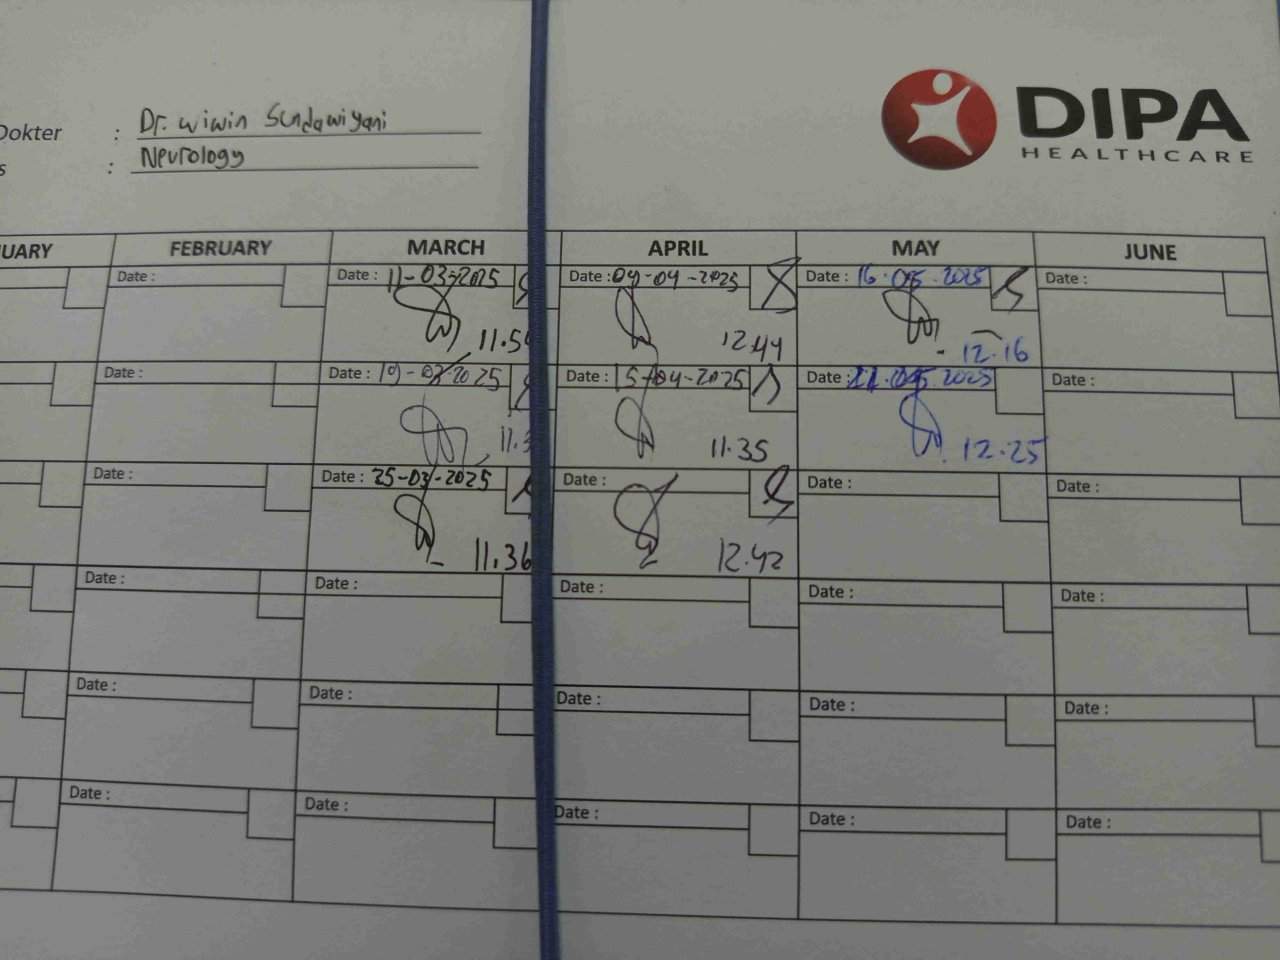 Dokter : Dr. Wiwin Sundawiyani
s : Neurology
DIPA
HEALTHCARE
UARY FEBRUARY MARCH APRIL MAY JUNE
Date : Date : 11-03-2025 Date : 09-04-2025 Date : 16.05.2025 Date :
11.5 12.44 12.16
Date : Date : 19-03-2025 Date : 15-04-2025 Date : .05.2025 Date :
11.3 11.35 12.25
Date : Date : 25-03-2025 Date : Date : Date :
11.36 12.42
Date : Date : Date : Date : Date :
Date : Date : Date : Date : Date :
Date : Date : Date : Date : Date :